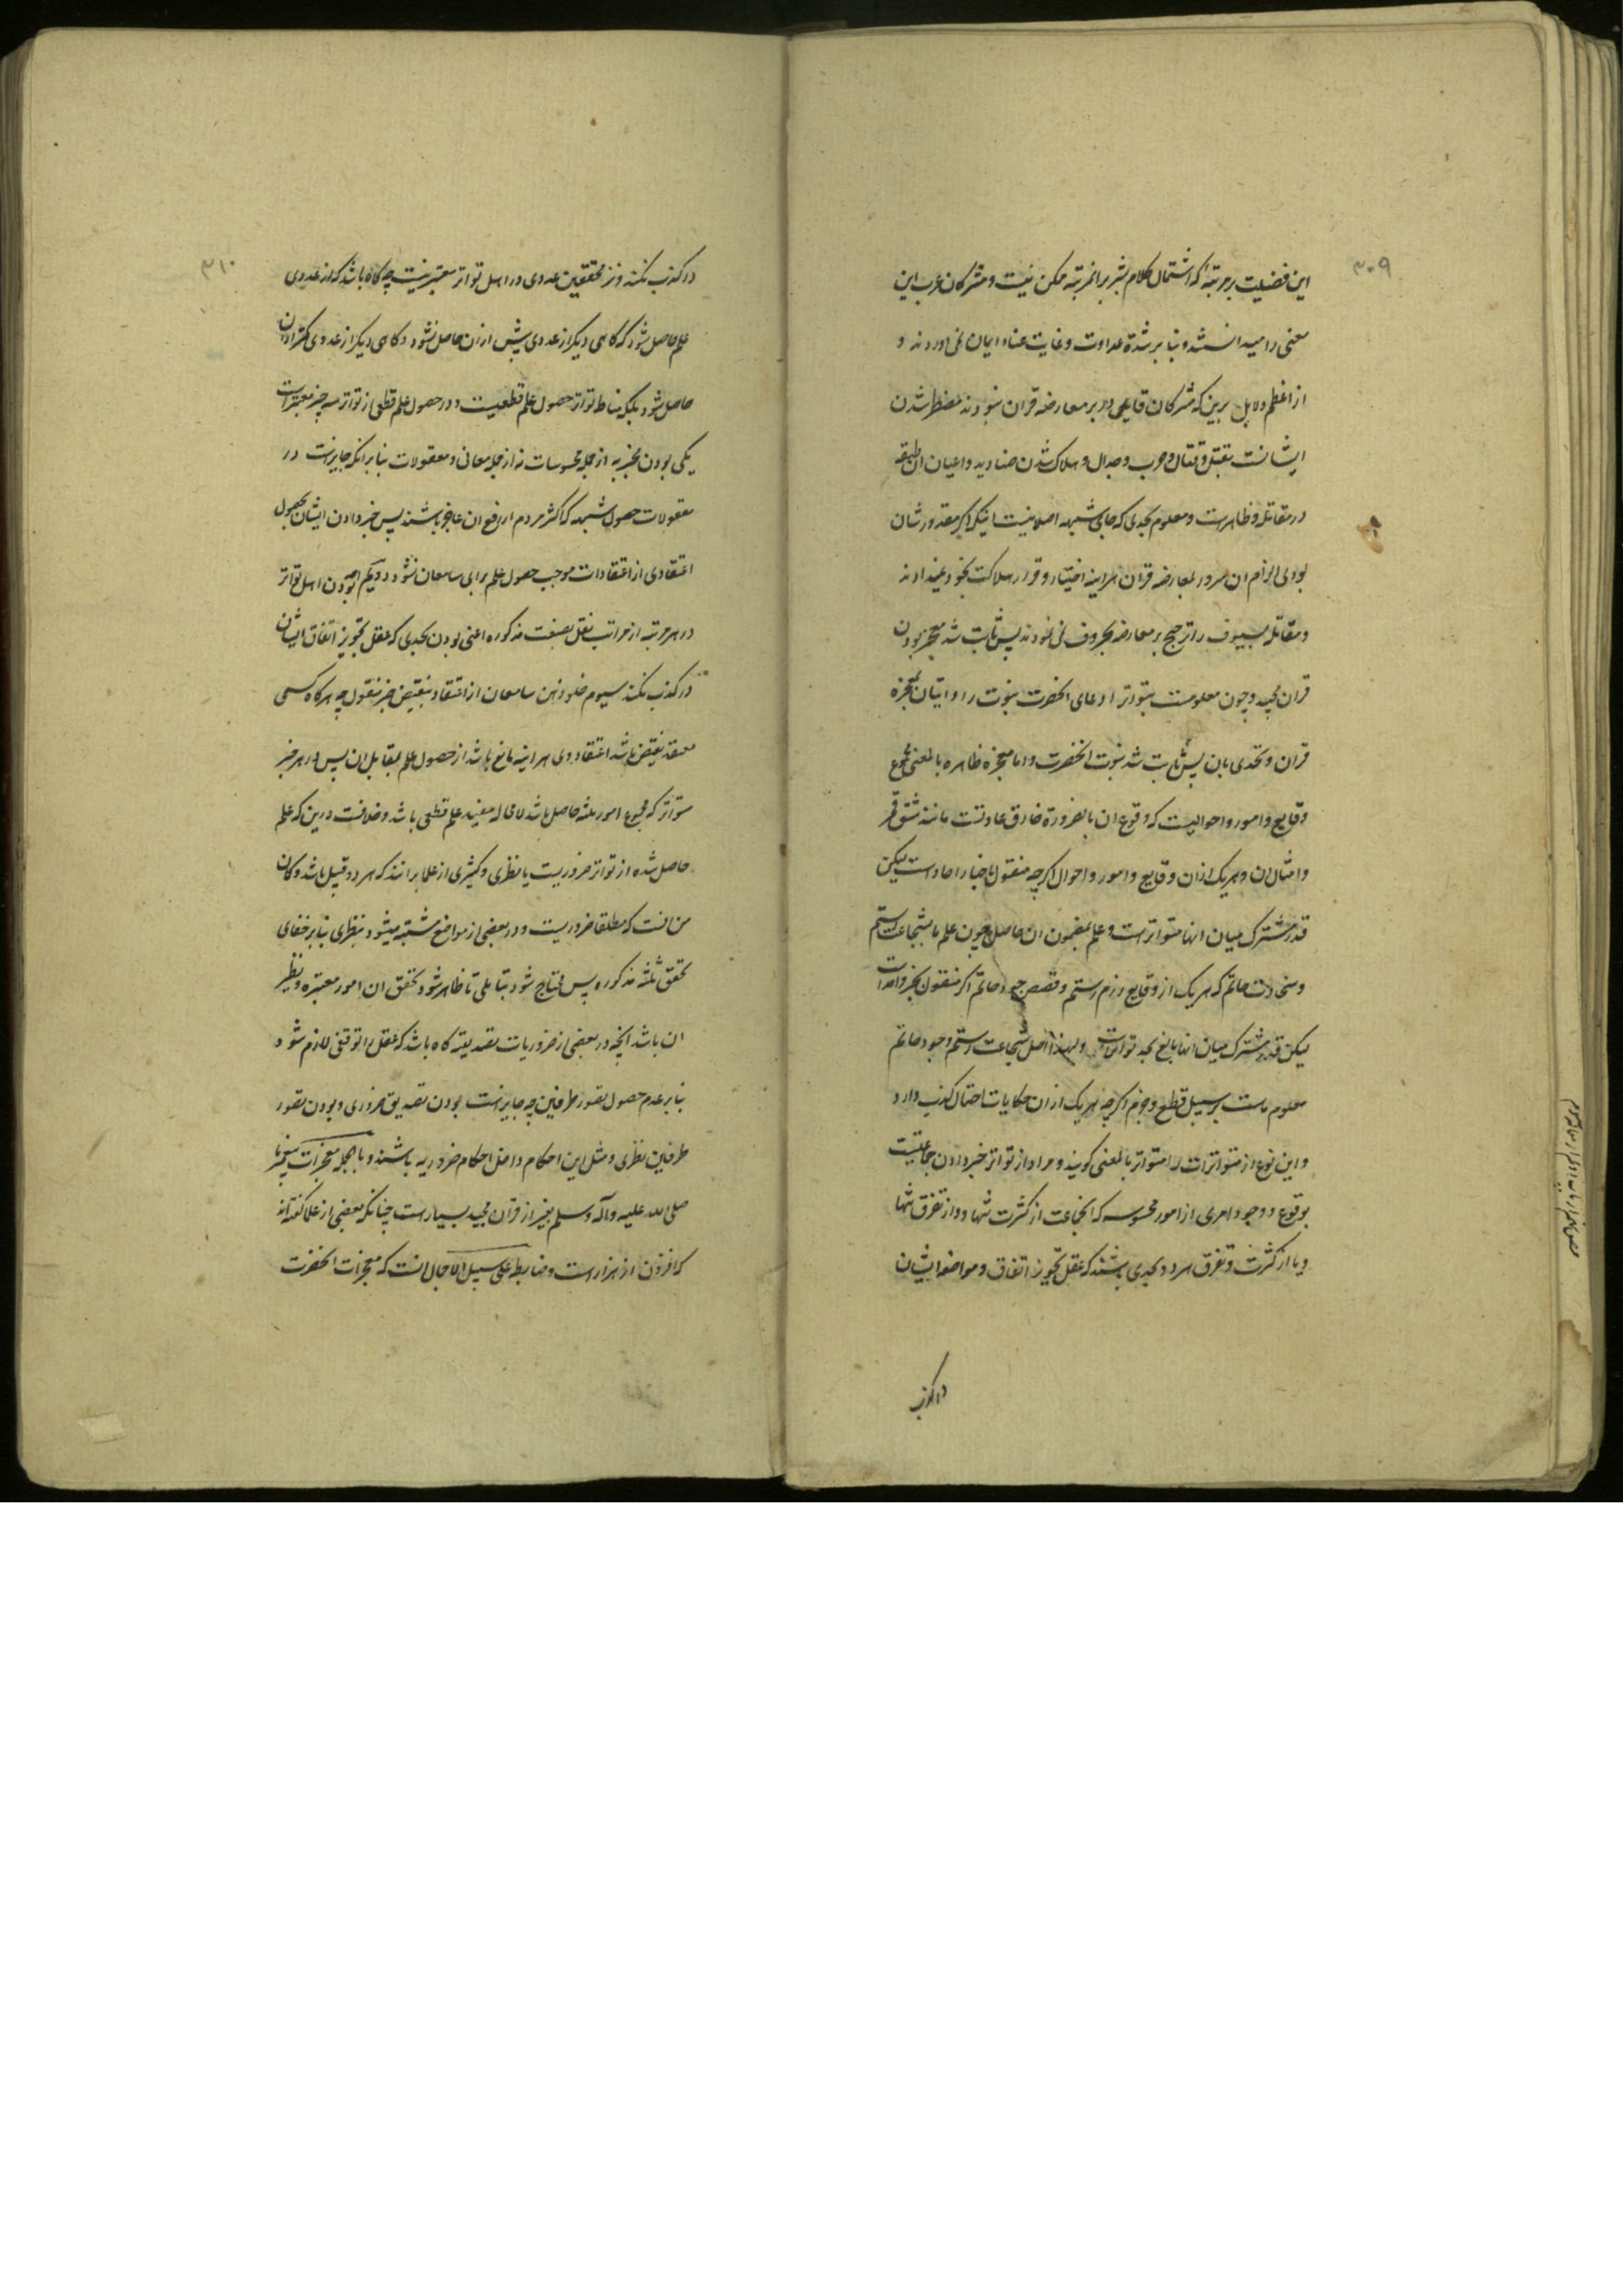 ۳۰۹
این فضیلت بمرتبه که اشتمال کلام بشر بر انمرتبه ممکن نیست و مشرکان عرب این
معنی را میدانستند و بنا بر شدة عداوت و غایت عناد ایمان نمی اوردند و
از اعظم دلایل برین که مشرکان قادر بر معارضه قران نبودند مضطر شدن
ایشانست بقتل و قتال و حرب و جدال و هلاک شدن صنادید و اعیان ان طبقه
در مقاتله و ظاهرست و معلوم بحدی که جای شبهه اصلا نیست اینکه اگر مقدورشان
بودی الزام ان سرور بمعارضه قران هراینه اختیار و قرار هلاکت بخود نمیدادند
و مقاتله بسیوف را ترجیح بر معارضه بحروف نمی نمودند پس ثابت شد معجز بودن
قران مجید و چون معلومست بتواتر ادعای انحضرت نبوت را و اتیان بمعجزه
قران و تحدی بان پس ثابت شد نبوت انحضرت و اما معجزه ظاهره بالمعنی مجموع
وقایع و امور و احوالیست که وقوع ان بالضرورة خارق عادتست مانند شق قمر
و امثال ان و هریک ازان وقایع و امور و احوال اگرچه منقول باخبار احادست لیکن
قدر مشترک میان انها متواترست و علم بمضمون ان حاصل چون علم ما بشجاعت رستم
و سخاوت حاتم که هریک از وقایع رزم رستم و قصص جود حاتم اگر منقول بخبر واحدست
لیکن قدر مشترک میان انها بالغ بحد تواترست و لهذا اصل شجاعت رستم و جود حاتم
معلوم ماست بر سبیل قطع و جزم اگرچه هریک ازان حکایات احتمال کذب دارد
و این نوع از متواترات را متواتر بالمعنی گویند و مراد از تواتر خبر دادن جماعتیست
بوقوع و وجود امری از امور محسوسه که انجماعت از کثرت تنها و از تفرق تنها
و یا از کثرت و تفرق هر دو بحدی باشند که عقل تجویز اتفاق و مواضعه ایشان
در کذب
۳۱۰
در کذب نکند و نزد محققین عددی در اهل تواتر معتبر نیست چه گاه باشد که از عددی
علم حاصل شود که گاهی دیگر از عددی بیش ازان حاصل نشود و گاهی دیگر از عددی کمتر ازان
حاصل شود بلکه مناط تواتر حصول علم قطعیست و در حصول علم قطعی از تواتر سه چیز معتبرست
یکی بودن مخبر به از جمله محسوسات نه از جمله معانی و معقولات بنا برانکه جایزست در
معقولات حصول شبهه که اکثر مردم از رفع ان عاجز باشند پس خبر دادن ایشان بحصول
اعتقادی از اعتقادات موجب حصول علم برای سامعان نشود دویم بودن اهل تواتر
در هر مرتبه از مراتب نقل بصفت مذکوره اعنی بودن بحدی که عقل تجویز اتفاق ایشان
در کذب نکند سیوم خلو ذهن سامعان از اعتقاد بنقیض خبر منقول چه هرگاه کسی
معتقد نقیض باشد اعتقاد وی هراینه مانع باشد از حصول علم بمقابل ان پس در هر خبر
متواتر که مجموع امور ثلثه حاصل باشد لا محاله مفید علم قطعی باشد و خلافست درین که علم
حاصل شده از تواتر ضروریست یا نظری و کثیری از علما برانند که هر دو قبیل باشد و گمان
من انست که مطلقا ضروریست و در بعضی از مواضع مشتبه میشود بنظری بنا بر خفای
تحقق ثلثه مذکوره پس محتاج شود بتاملی تا ظاهر شود تحقق ان امور معتبره و نظیر
ان باشد انچه در بعضی از ضروریات تصدیقیه گاه باشد که عقل را توقفی لازم شود
بنا بر عدم حصول تصور طرفین چه جایزست بودن تصدیق ضروری و بودن تصور
طرفین نظری و مثل این احکام داخل احکام ضروریه باشند و بالجمله معجزات پیغمبر ما
صلی الله علیه و آله و سلم بغیر از قران مجید بسیارست چنانکه بعضی از علما گفته اند
که افزون از هزارست و ضابط علی سبیل الاجمال انست که معجزات انحضرت